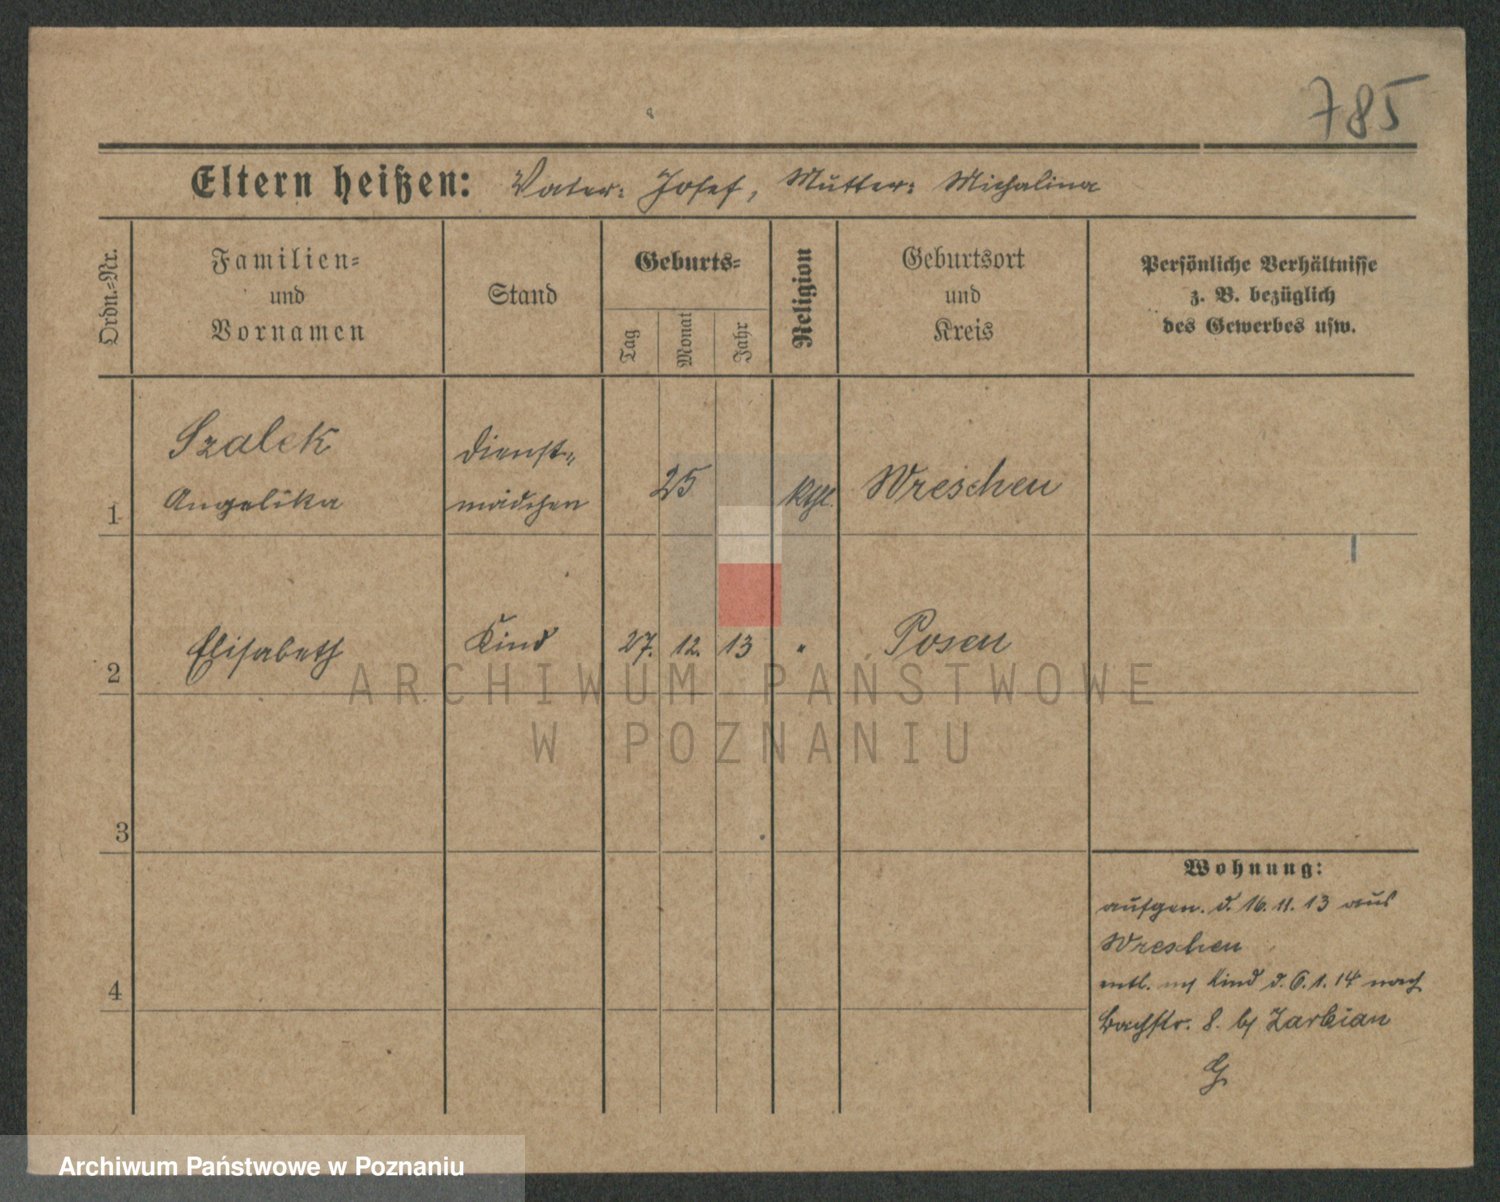 785
Eltern heißen: Vater: Josef, Mutter: Michalina
Ordn.-Nr.
Familien-
und
Vornamen
Stand
Geburts-
Tag
Monat
Jahr
Religion
Geburtsort
und
Kreis
Persönliche Verhältnisse
z. B. bezüglich
des Gewerbes usw.
1
Szalek
Angelika
Dienst-
mädchen
25
kthl.
Wreschen
2
Elisabeth
Kind
27. 12. 13
"
Posen
3
4
Wohnung:
aufgen. d. 16.11.13 aus
Wreschen
entl. m/ Kind d. 6.1.14 nach
Bachstr. 8. b/ Zarbian
G
ARCHIWUM PAŃSTWOWE
W POZNANIU
Archiwum Państwowe w Poznaniu